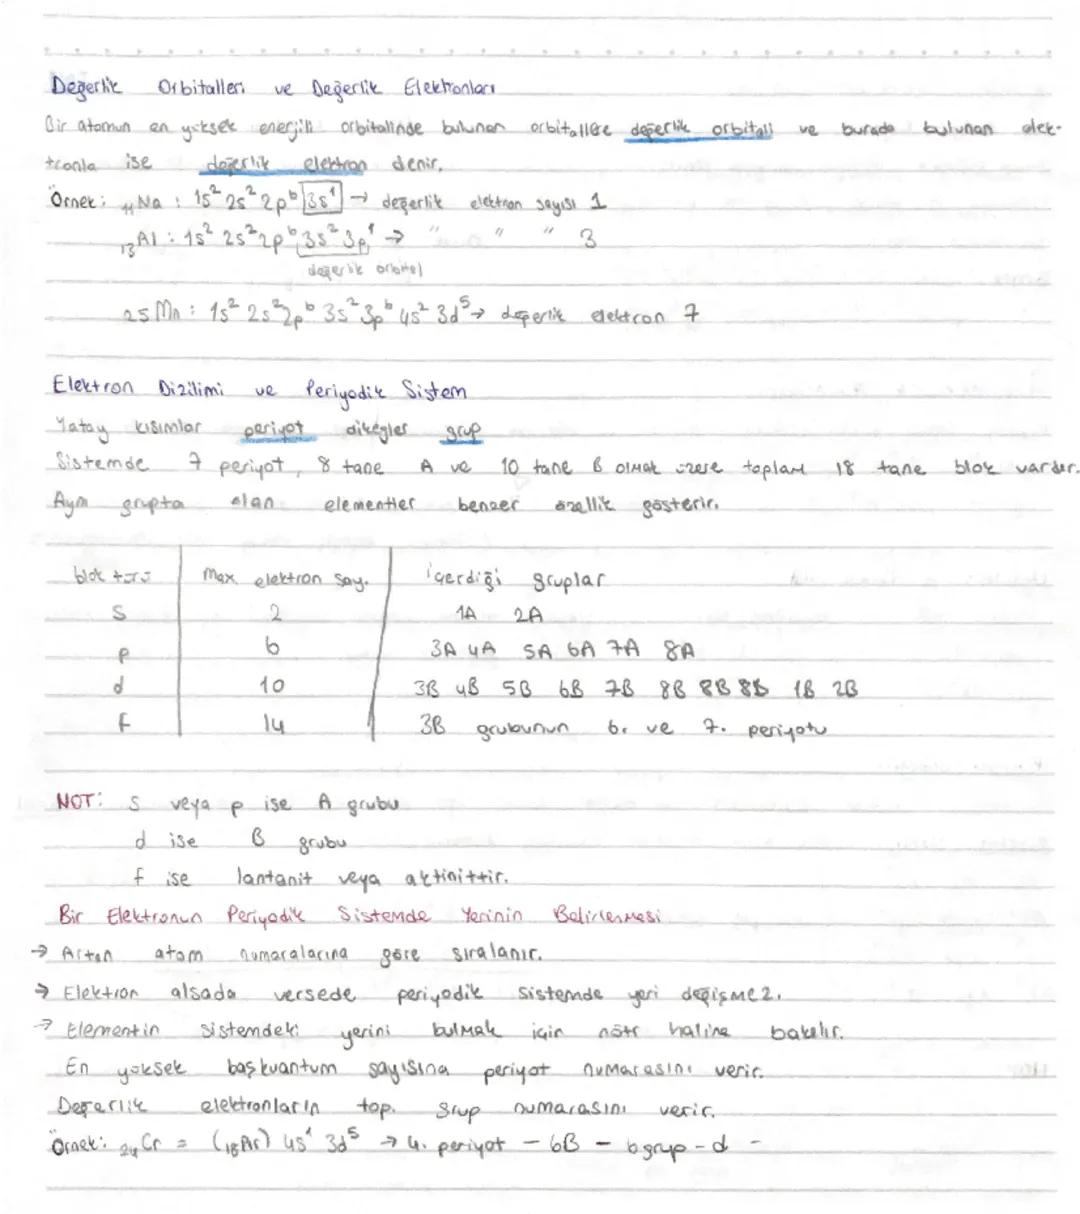 Değerlik Orbitalleri ve Değerlik Elektronları
Bir atomun en yüksek enerjili orbitalinde bulunan orbitallere değerlik orbitali ve burada bulunan elek-
tronla ise değerlik elektron denir.
Örnek: ₁₁Na : 1s² 2s² 2p⁶ 3s¹ → değerlik elektron sayısı 1
₁₃Al : 1s² 2s² 2p⁶ 3s² 3p¹ → " " " 3
değerlik orbital
25 Mn : 1s² 2s² 2p⁶ 3s² 3p⁶ 4s² 3d⁵ → değerlik elektron 7
Elektron Dizilimi ve Periyodik Sistem
Yatay kısımlar periyot dikeyler grup
Sistemde 7 periyot, 8 tane A ve 10 tane B olmak üzere toplam 18 tane blok vardır.
Aynı grupta olan elementler benzer özellik gösterir.
blok türü Max elektron say. içerdiği gruplar
S 2 1A 2A
p 6 3A 4A 5A 6A 7A 8A
d 10 3B 4B 5B 6B 7B 8B 8B 8B 1B 2B
f 14 3B grubunun 6. ve 7. periyotu
NOT: S veya p ise A grubu
d ise B grubu
f ise lantanit veya aktinittir.
Bir Elektronun Periyodik Sistemde Yerinin Belirlenmesi
→ Artan atom numaralarına göre sıralanır.
→ Elektron alsada versede periyodik sistemde yeri değişmez.
→ Elementin sistemdeki yerini bulmak için nötr haline bakılır.
En yüksek başkuantum sayısına periyot numarasını verir.
Değerlik elektronların top. grup numarasını verir.
Örnek: ₂₄Cr = (₁₈Ar) 4s¹ 3d⁵ → 4. periyot - 6B - 6 grup - d -